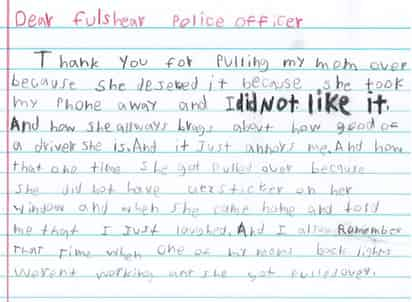 Dear fulshear Police officer
Thank you for Pulling my mom over
because she deserved it because she took
my Phone away and I did Not like it.
And how she allways brags about how good of
a driver she is. And it Just annoys me. And how
that one time she got Pulled over because
she did not have uersticker on her
window and when she came home and told
me that I Just laughed. And I allso Remember
That Time when one of my moms back lights
werent working and she got Pulled over.